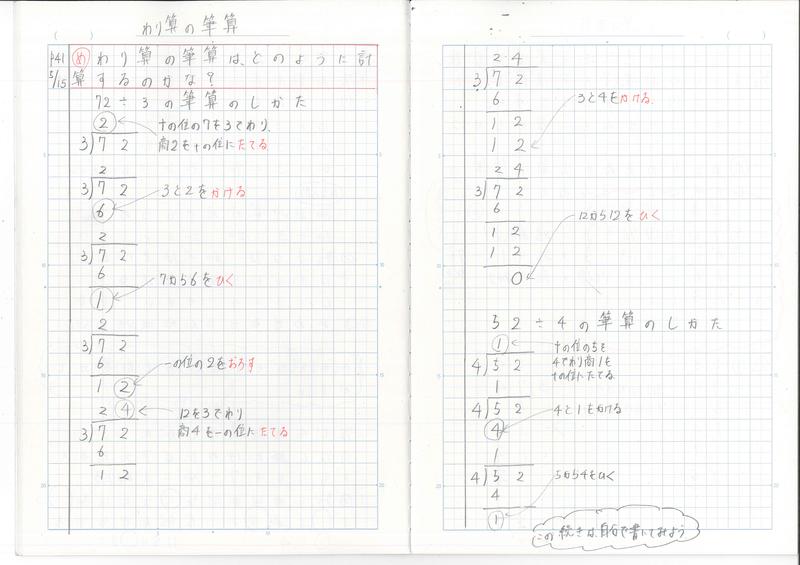 わり算の筆算
P41
5/15
め わり算の筆算は、どのように計
算するのかな?
72÷3の筆算のしかた
2
3)72
十の位の7を3でわり、
商2を十の位にたてる
2
3)72
6
3と2をかける
2
3)72
6
1
7から6をひく
2
3)72
6
12
一の位の2をおろす
24
3)72
6
12
12を3でわり
商4を一の位にたてる
2・4
3)72
6
12
12
3と4をかける
24
3)72
6
12
12
0
12から12をひく
52÷4の筆算のしかた
1
4)52
十の位の5を
4でわり商1を
十の位にたてる
1
4)52
4
4と1をかける
1
4)52
4
1
5から4をひく
この続きは、自分で書いてみよう